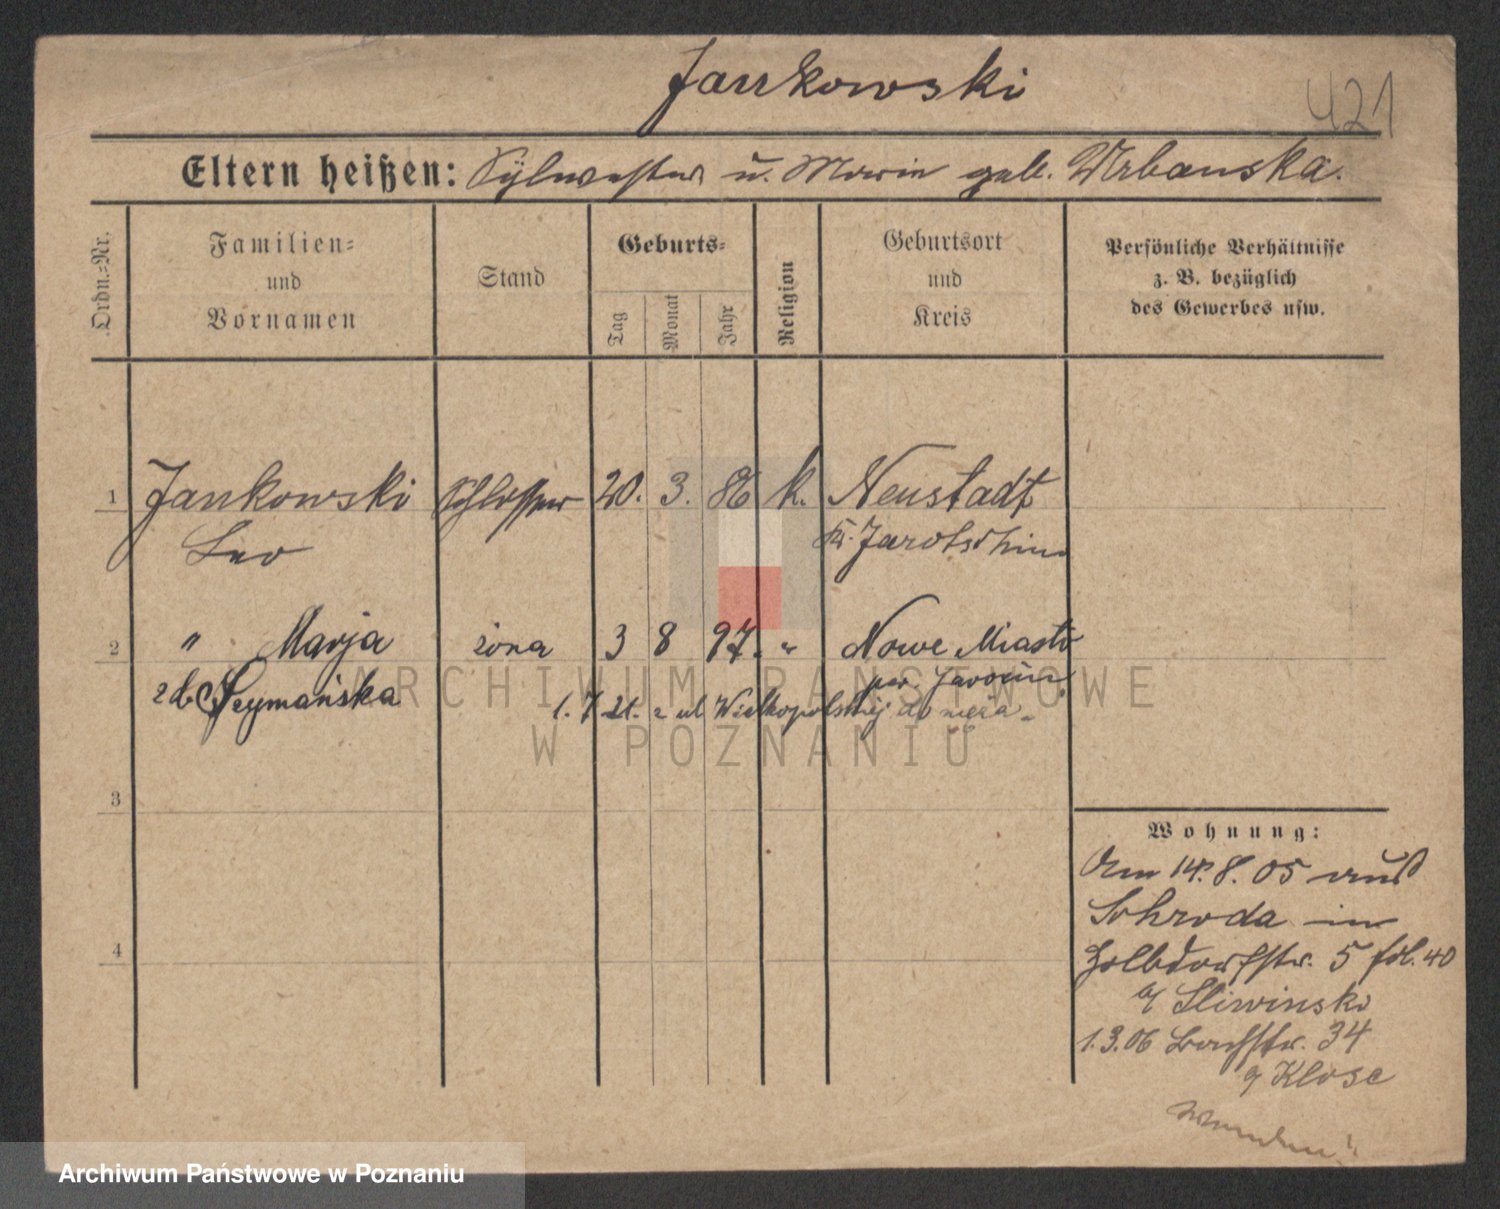 Jankowski
421
Eltern heißen: Sylwester u. Marie geb. Urbanska.
Ordn.-Nr.
Familien-
und
Vornamen
Stand
Geburts-
Tag
Monat
Jahr
Religion
Geburtsort
und
Kreis
Persönliche Verhältnisse
z. B. bezüglich
des Gewerbes usw.
1 Jankowski Schlosser 20. 3. 86 k. Neustadt
Leo Kr. Jarotschin
2 " Marja żona 3 8 97. " Nowe Miasto
zd. Szymańska pow. Jarocin
1. 7. 21. z ul Wielkopolskiej do męża
3
4
Wohnung:
Am 14. 8. 05 aus
Schroda in
Posdorfstr. 5
b/ Sliwinski
1. 3. 06 Bachstr. 34
b/ Klose
ARCHIWUM PAŃSTWOWE
W POZNANIU
Archiwum Państwowe w Poznaniu